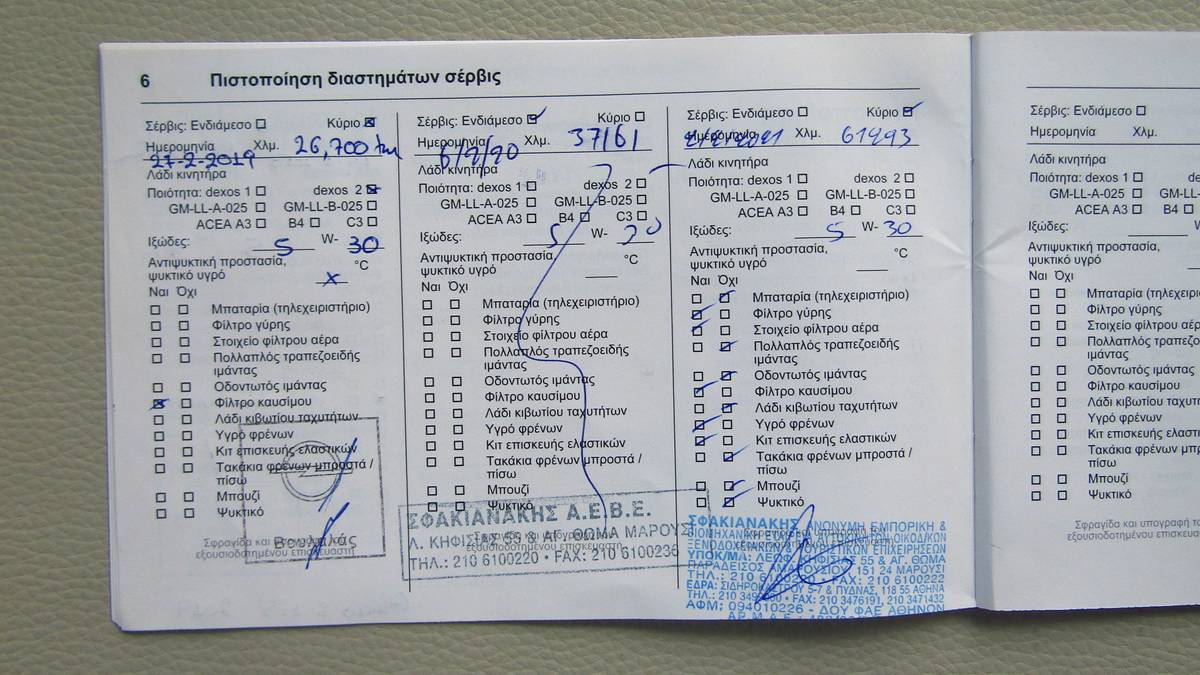 6 Πιστοποίηση διαστημάτων σέρβις
Σέρβις: Ενδιάμεσο Κύριο
Ημερομηνία Χλμ. 26,700 km
27-2-2019
Λάδι κινητήρα
Ποιότητα: dexos 1 dexos 2
GM-LL-A-025 GM-LL-B-025
ACEA A3 B4 C3
Ιξώδες: 5 W- 30
Αντιψυκτική προστασία,
ψυκτικό υγρό x °C
Ναι Όχι
Μπαταρία (τηλεχειριστήριο)
Φίλτρο γύρης
Στοιχείο φίλτρου αέρα
Πολλαπλός τραπεζοειδής
ιμάντας
Οδοντωτός ιμάντας
Φίλτρο καυσίμου
Λάδι κιβωτίου ταχυτήτων
Υγρό φρένων
Κιτ επισκευής ελαστικών
Τακάκια φρένων μπροστά /
πίσω
Μπουζί
Ψυκτικό
Σφραγίδα και υπογραφή του
εξουσιοδοτημένου επισκευαστή
Βουλαλάς
Σέρβις: Ενδιάμεσο Κύριο
Ημερομηνία Χλμ. 37161
6/2/20
Λάδι κινητήρα
Ποιότητα: dexos 1 dexos 2
GM-LL-A-025 GM-LL-B-025
ACEA A3 B4 C3
Ιξώδες: 5 W-
Αντιψυκτική προστασία,
ψυκτικό υγρό °C
Ναι Όχι
Μπαταρία (τηλεχειριστήριο)
Φίλτρο γύρης
Στοιχείο φίλτρου αέρα
Πολλαπλός τραπεζοειδής
ιμάντας
Οδοντωτός ιμάντας
Φίλτρο καυσίμου
Λάδι κιβωτίου ταχυτήτων
Υγρό φρένων
Κιτ επισκευής ελαστικών
Τακάκια φρένων μπροστά /
πίσω
Μπουζί
Ψυκτικό
ΣΦΑΚΙΑΝΑΚΗΣ Α.Ε.Β.Ε.
Λ. ΚΗΦΙΣΙΑΣ 55 & ΑΓ. ΘΩΜΑ ΜΑΡΟΥΣΙ
ΤΗΛ.: 210 6100220 • FAX: 210 6100236
Σέρβις: Ενδιάμεσο Κύριο
Ημερομηνία Χλμ. 61293
Λάδι κινητήρα
Ποιότητα: dexos 1 dexos 2
GM-LL-A-025 GM-LL-B-025
ACEA A3 B4 C3
Ιξώδες: 5 W- 30
Αντιψυκτική προστασία,
ψυκτικό υγρό °C
Ναι Όχι
Μπαταρία (τηλεχειριστήριο)
Φίλτρο γύρης
Στοιχείο φίλτρου αέρα
Πολλαπλός τραπεζοειδής
ιμάντας
Οδοντωτός ιμάντας
Φίλτρο καυσίμου
Λάδι κιβωτίου ταχυτήτων
Υγρό φρένων
Κιτ επισκευής ελαστικών
Τακάκια φρένων μπροστά /
πίσω
Μπουζί
Ψυκτικό
ΣΦΑΚΙΑΝΑΚΗΣ ΑΝΩΝΥΜΗ ΕΜΠΟΡΙΚΗ &
ΞΕΝΟΔΟΧΕΙΑΚΩΝ & ΤΟΥΡΙΣΤΙΚΩΝ ΕΠΙΧΕΙΡΗΣΕΩΝ
ΥΠΟΚ/ΜΑ: ΛΕΩΦ. ΚΗΦΙΣΙΑΣ 55 & ΑΓ. ΘΩΜΑ
ΠΑΡΑΔΕΙΣΟΣ ΑΜΑΡΟΥΣΙΟΥ 151 24 ΜΑΡΟΥΣΙ
ΤΗΛ.: 210 FAX: 210 6100222
ΕΔΡΑ: 5-7 & ΠΥΔΝΑΣ, 118 55 ΑΘΗΝΑ
ΤΗΛ.: 210 • FAX: 210 3476191, 210 3471432
ΑΦΜ: 094010226 - ΔΟΥ ΦΑΕ ΑΘΗΝΩΝ
Σέρβις: Ενδιάμεσο
Ημερομηνία Χλμ.
Λάδι κινητήρα
Ποιότητα: dexos 1
GM-LL-A-025
ACEA A3 B4
Ιξώδες:
Αντιψυκτική προστασία,
ψυκτικό υγρό
Ναι Όχι
Μπαταρία
Φίλτρο γύρης
Στοιχείο
Πολλαπλός
ιμάντας
Οδοντωτός
Φίλτρο
Λάδι
Υγρό
Κιτ
Τακάκια
πίσω
Μπουζί
Ψυκτικό
Σφραγίδα και υπογραφή
εξουσιοδοτημένου